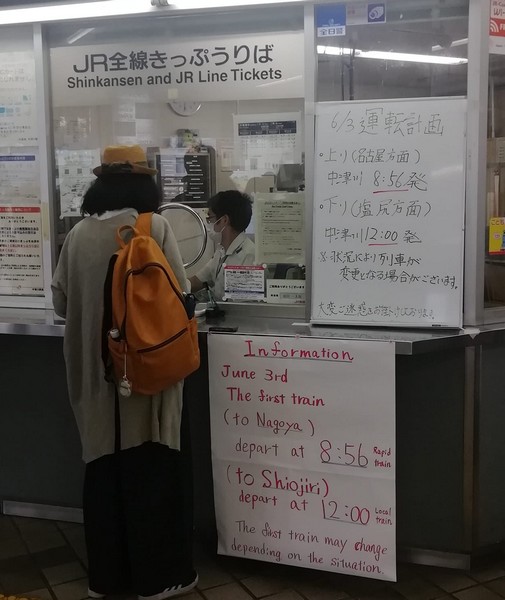 JR全線きっぷうりば
Shinkansen and JR Line Tickets
6/3 運転計画
・上り(名古屋方面)
中津川 8:56発
・下り(塩尻方面)
中津川 12:00発
※状況により列車が
変更となる場合がございます。
大変ご迷惑をお掛けしております。
Information
June 3rd
The first train
(to Nagoya)
depart at 8:56 Rapid train
(to Shiojiri)
depart at 12:00 Local train
The first train may change
depending on the situation.